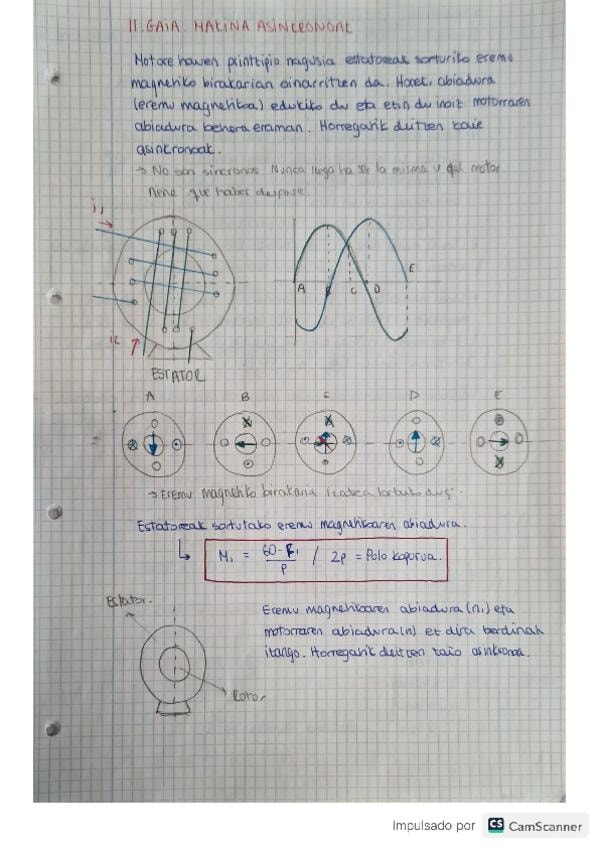 11. GAIA. MAKINA ASINKRONOAK
Motore hauen printzipio nagusia estatoreak sorturiko eremu
magnetiko birakarian oinarritzen da. Honek, abiadura
(eremu magnetikoa) edukiko du eta ezin du inoiz motorraren
abiadura berera eraman. Horregatik deitzen zaie
asinkronoak.
→ No son síncronos. Nunca llega ha ser la misma y el motor
tiene que haber desfase.
i₁
A B C D E
i2
ESTATOR
A B C D E
=
→ Eremu magnetiko birakaria izatea lortuko dugu.
Estatoreak sortutako eremu magnetikoaren abiadura.
N₁ = 60·F₁ / P / 2p = Polo kopurua.
Estator.
Eremu magnetikoaren abiadura (n₁) eta
motorraren abiadura (n) ez dira berdinak
izango. Horregatik deitzen zaio asinkronoa.
Rotor
Impulsado por CS CamScanner